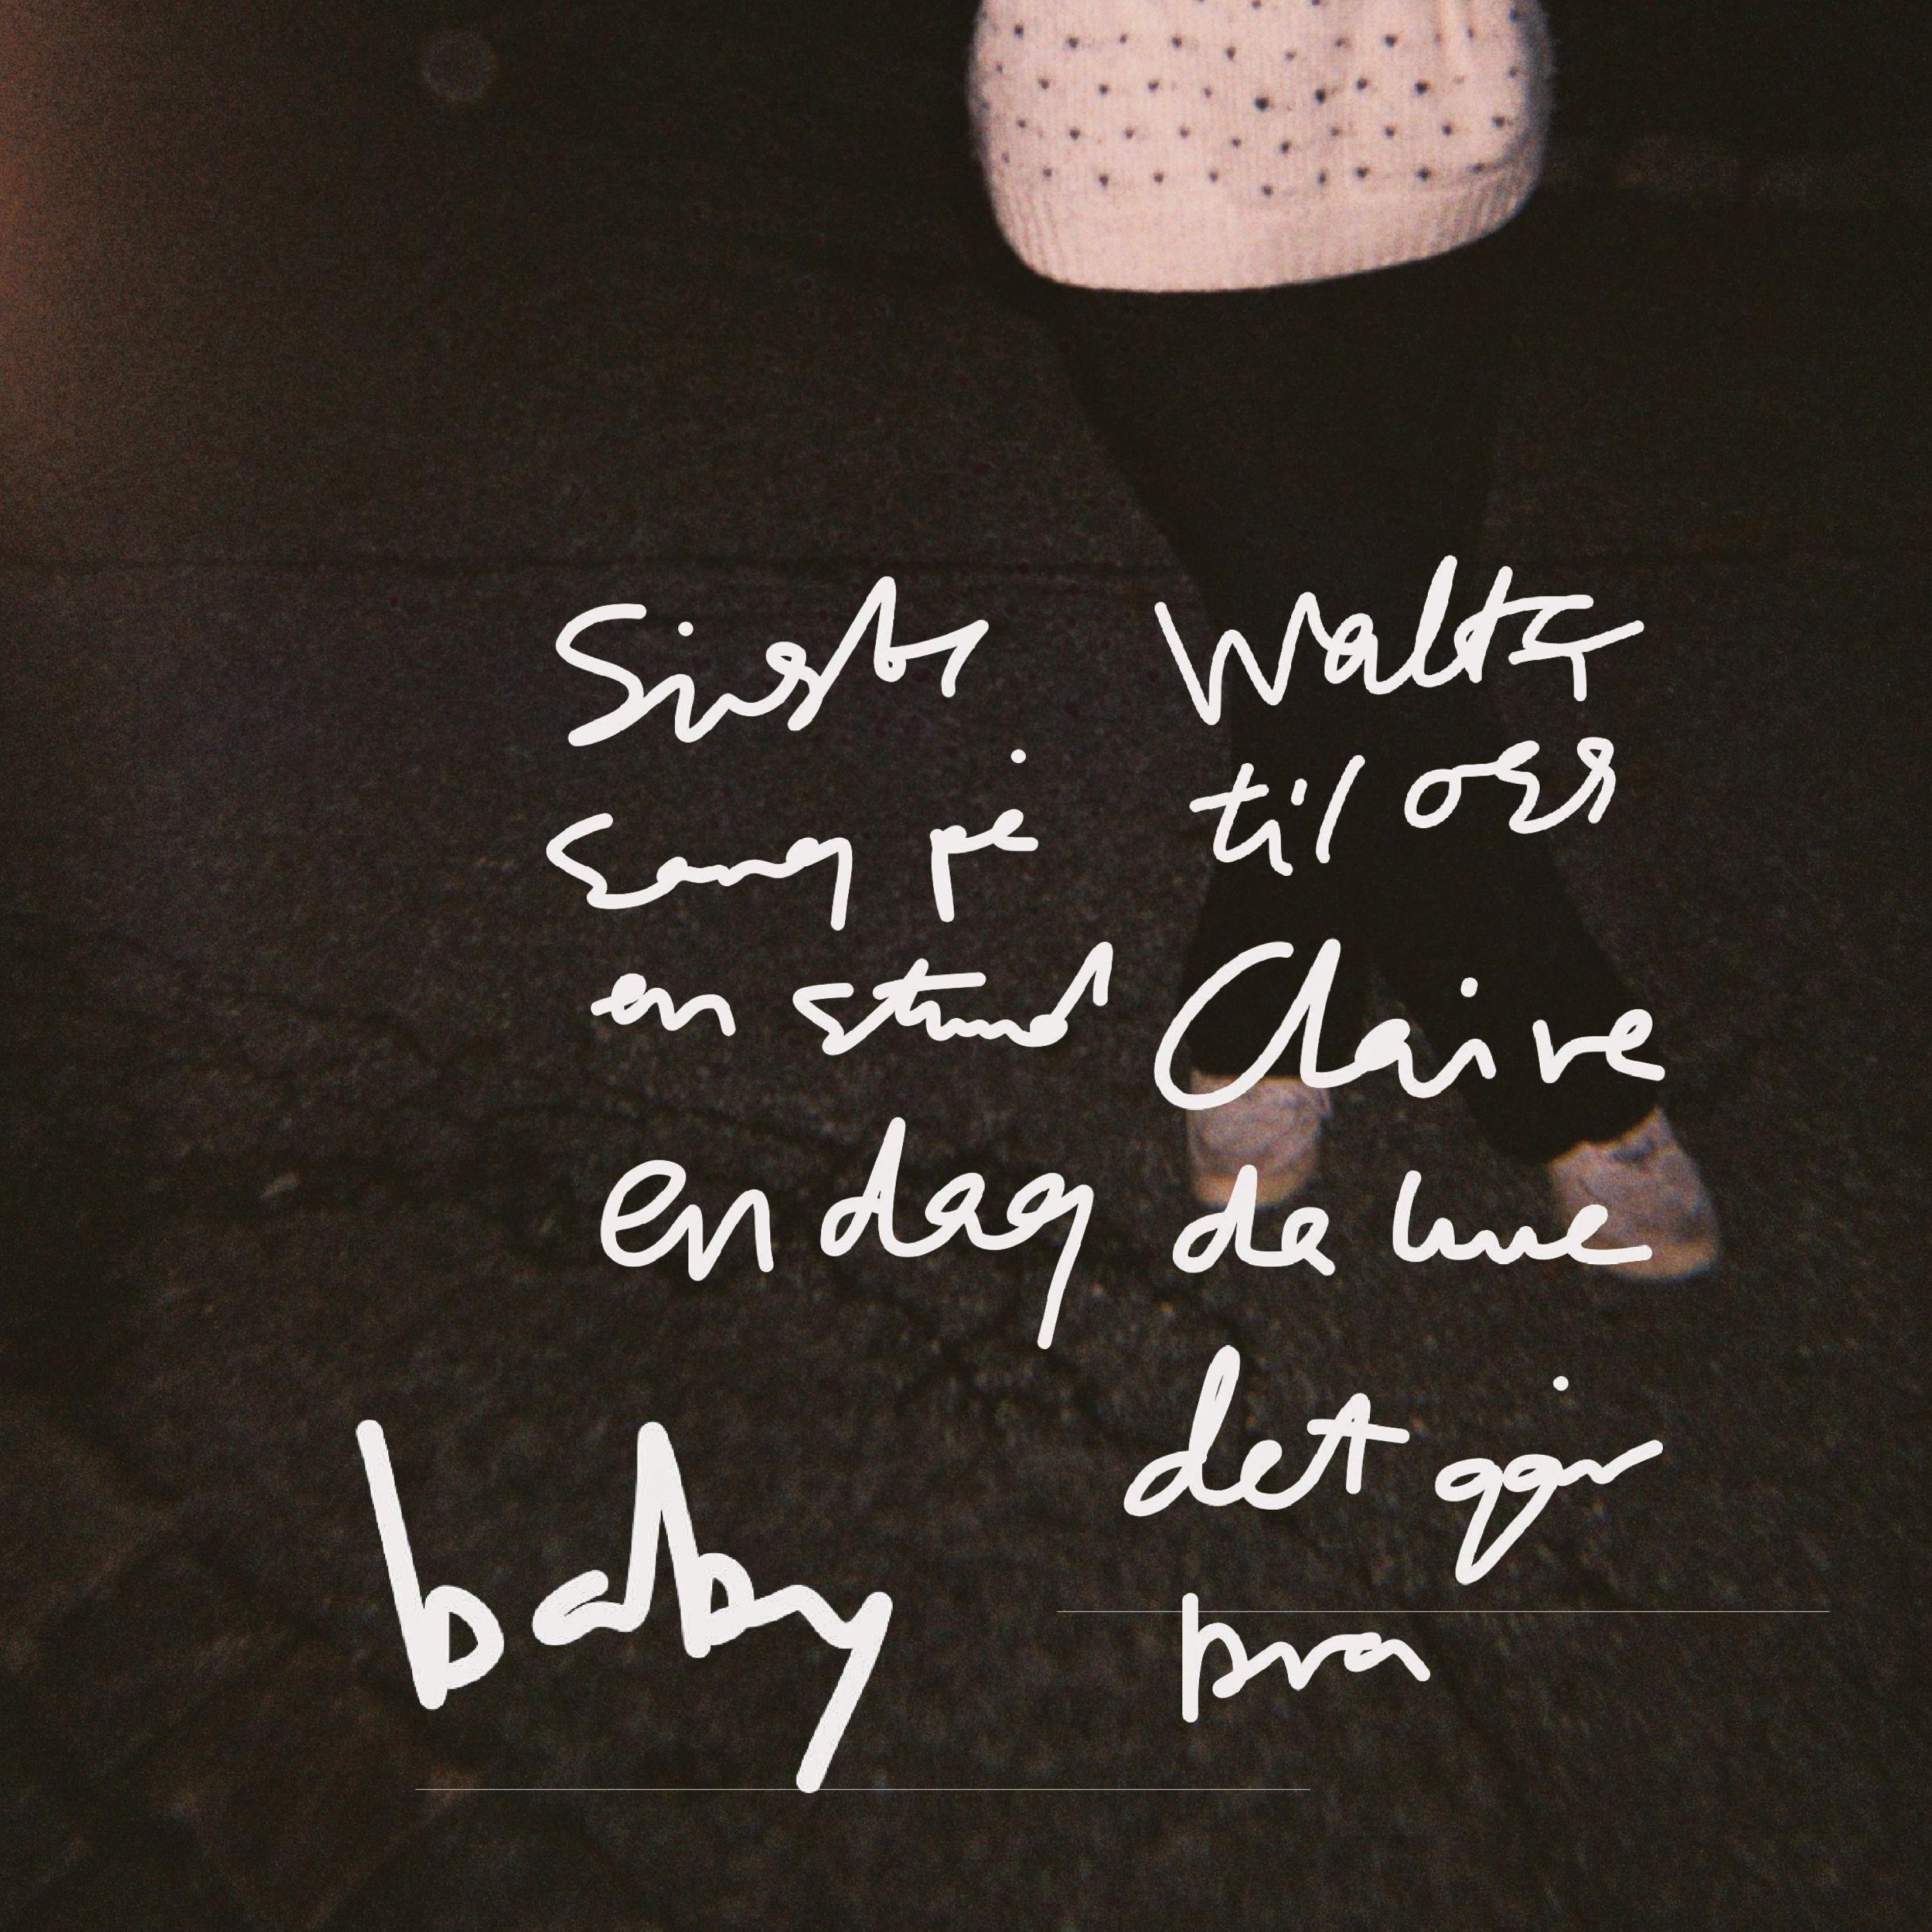 Siste
sang på
en stund
en dag
baby
Waltz
til oss
Claire
de lune
det går
bra